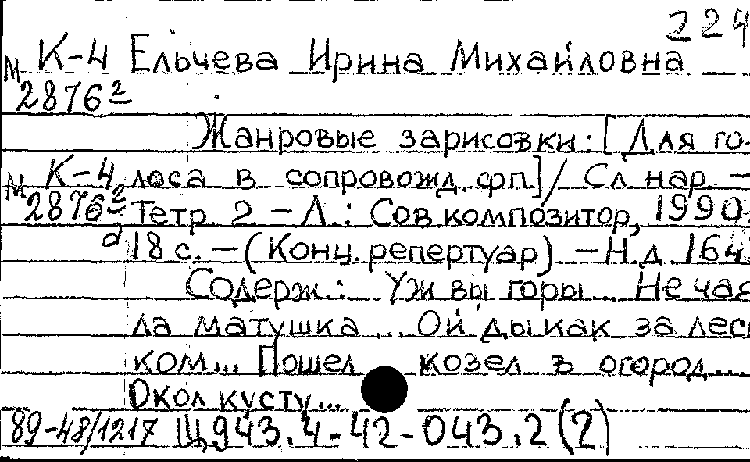 224
М К-4 Ельчева Ирина Михайловна
2876²
Жанровые зарисовки: [Для го-
М К-4 лоса в сопровожд. фп.] / Сл. нар. –
2876² Тетр. 2 – Л.: Сов. композитор, 1990.
д 18 с. – (Конц. репертуар) – Н.д. 164.
Содерж.: Уж вы горы... Не чая
ла матушка... Ой ды как за лес
ком... Пошел козел в огород...
Окол кусту...
89-48/1217 Щ943.4-42-043.2(2)